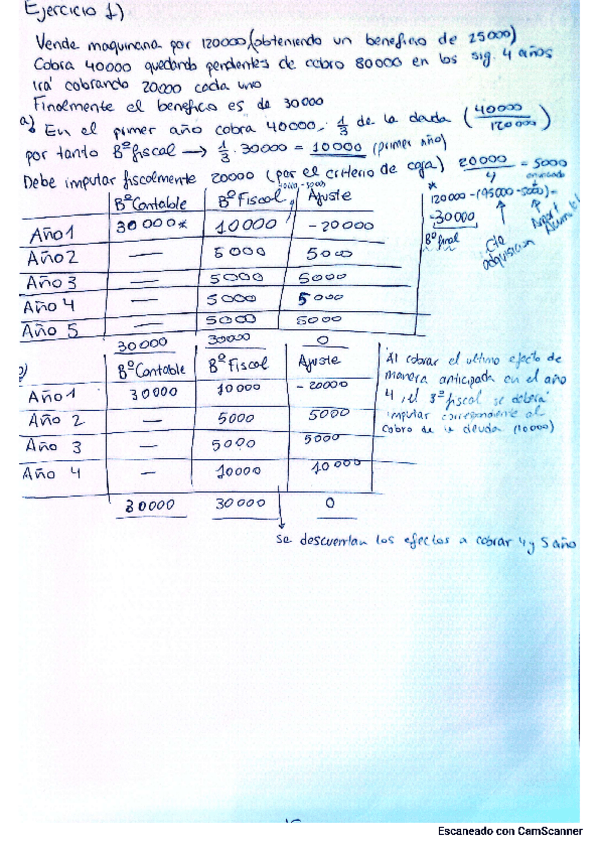 Ejercicio 1)
Vende maquinaria por 120000 (obteniendo un beneficio de 25000)
Cobra 40000 quedando pendentes de cobro 80000 en los sig. 4 años
irá cobrando 20000 cada uno
Finalmente el beneficio es de 30000
a) En el primer año cobra 40000, 1/3 de la deuda (40000/120000)
por tanto Bº fiscal → 1/3 · 30000 = 10000 (primer año)
Debe imputar fiscalmente 20000 (por el criterio de caja) 20000/4 = 5000
Bº Contable Bº Fiscal Ajuste
Año 1 30000* 10000 -20000
Año 2 — 5000 5000
Año 3 — 5000 5000
Año 4 — 5000 5000
Año 5 — 5000 5000
30000 30000 0
* 120000 - (95000 - 5000) =
30000
Bº final
Cte adquisicion
Bº Contable Bº Fiscal Ajuste
Año 1 30000 10000 -20000
Año 2 — 5000 5000
Año 3 — 5000 5000
Año 4 — 10000 10000
30000 30000 0
Al cobrar el ultimo efecto de
manera anticipada en el año
4, el Bº fiscal se deberá
imputar correspondiente al
cobro de la deuda (10000)
se descuentan los efectos a cobrar 4 y 5 año
Escaneado con CamScanner